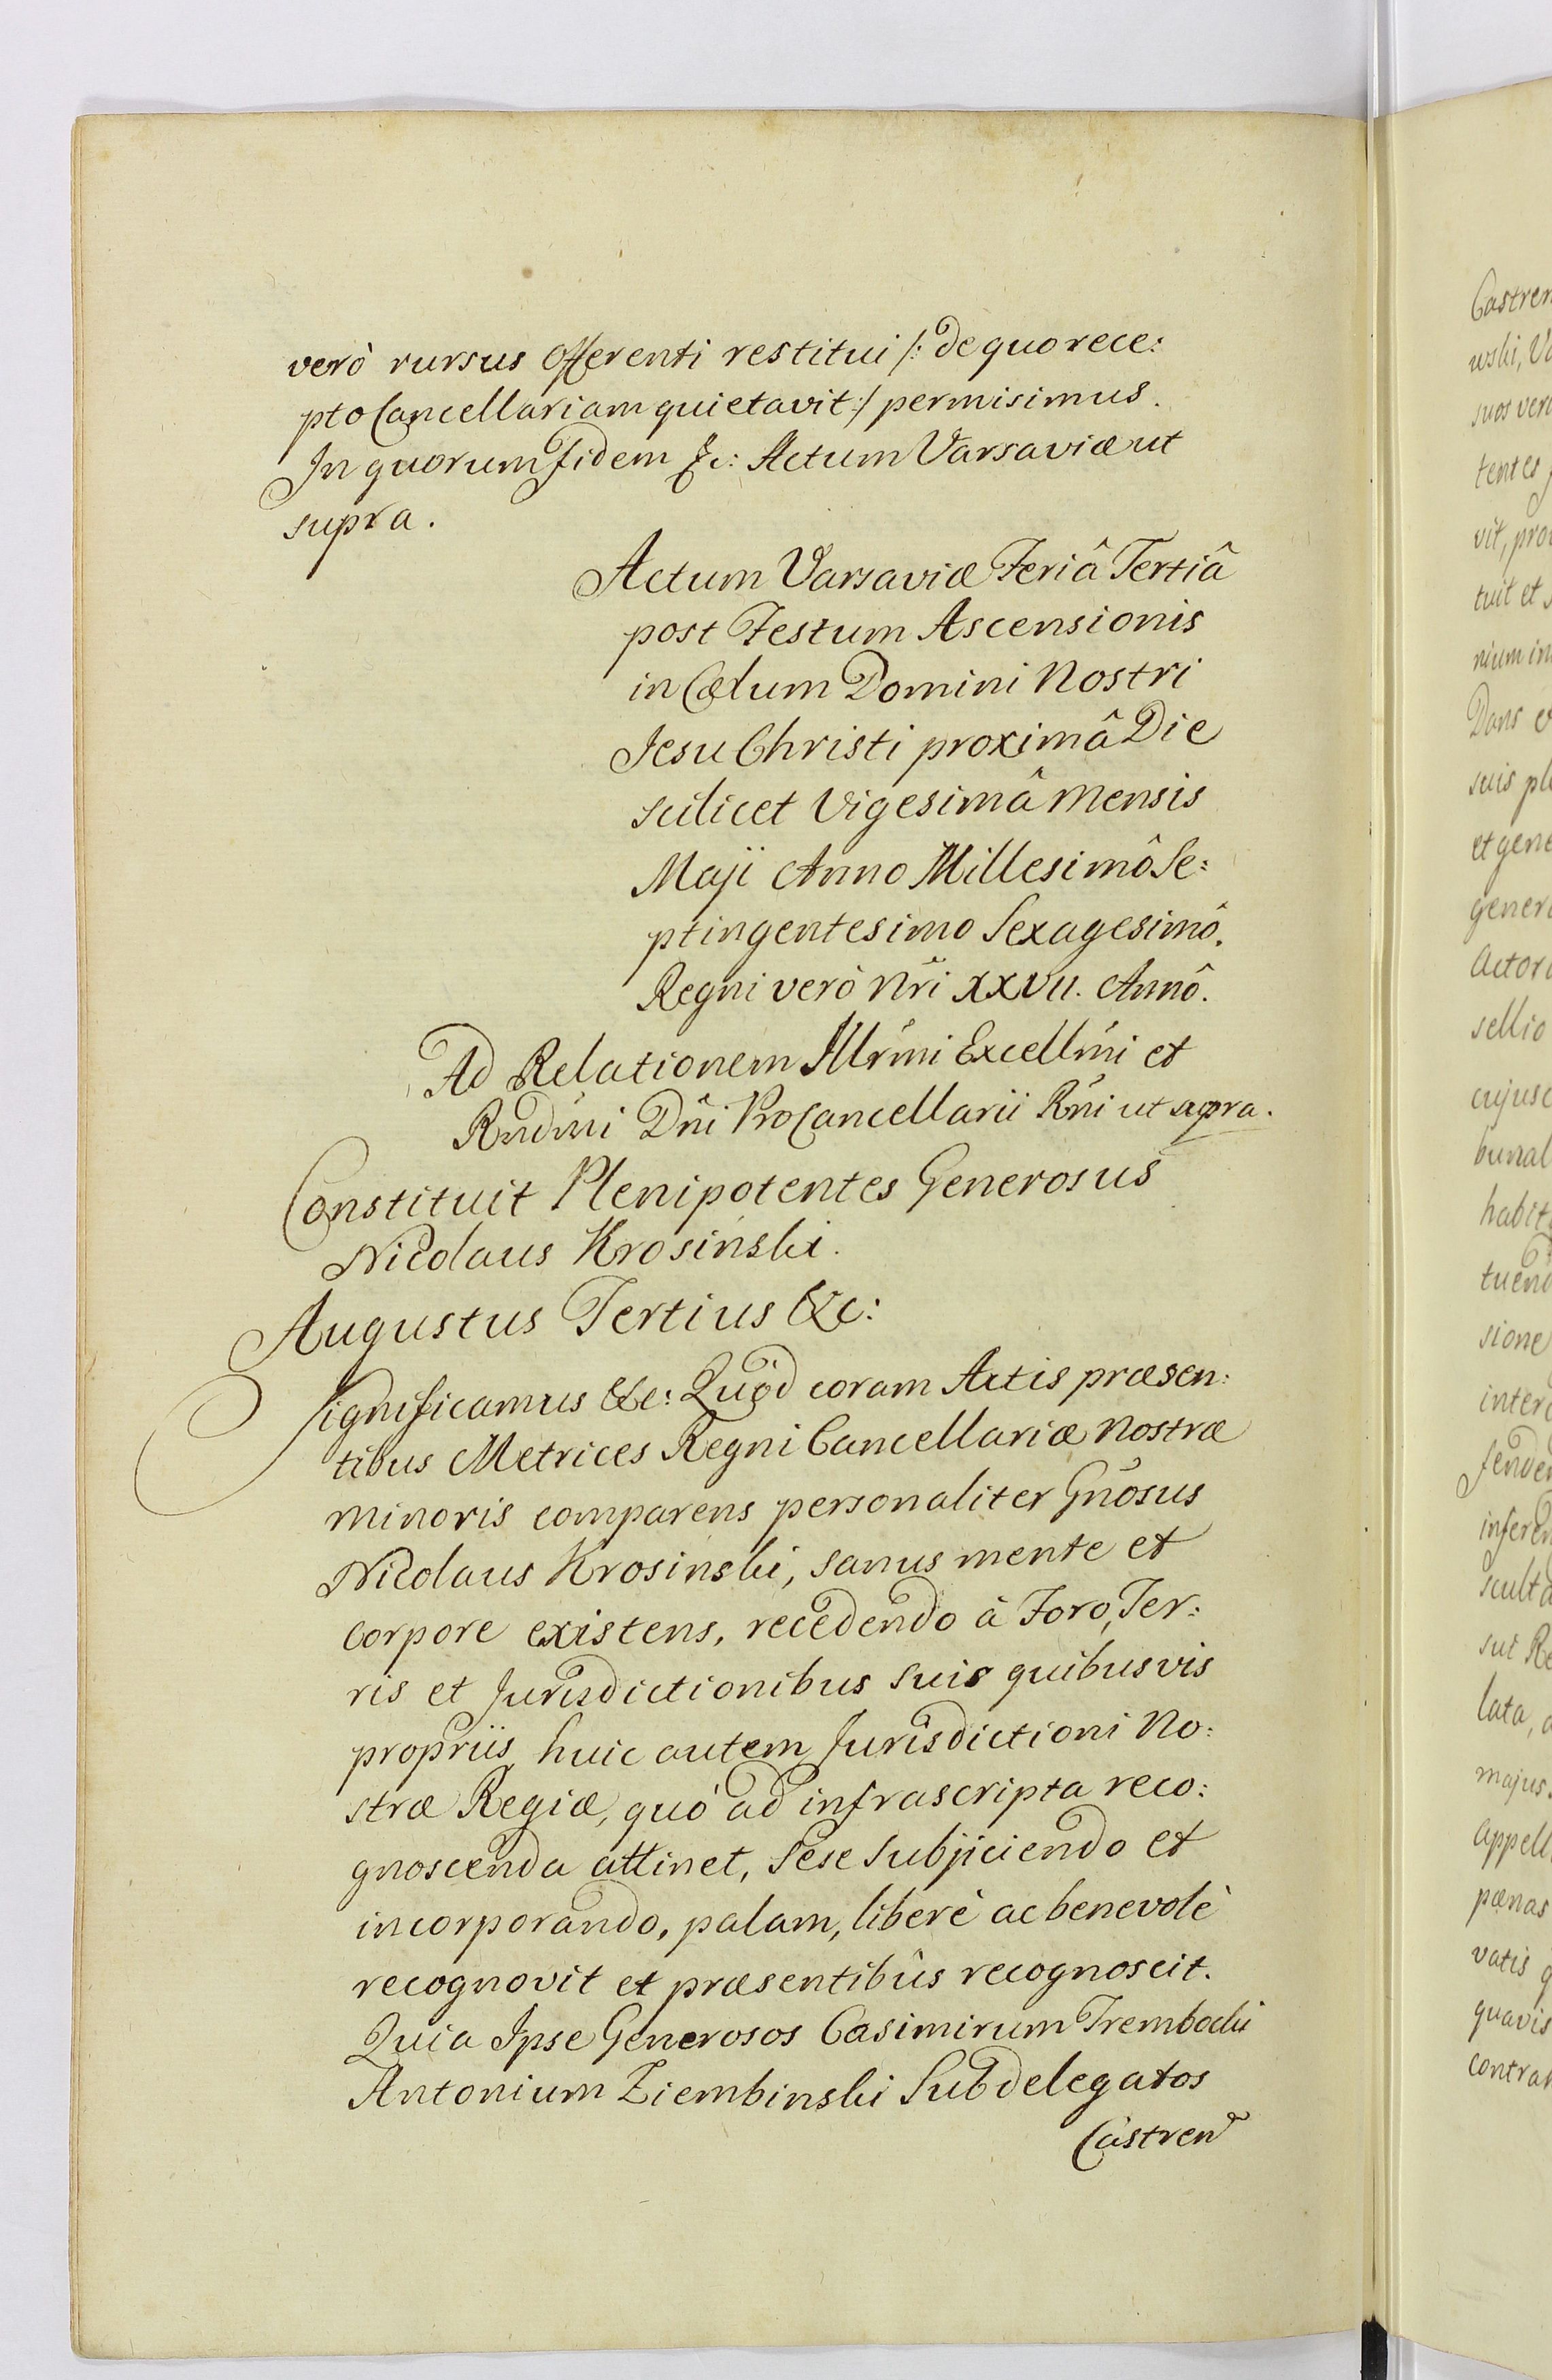 verò rursus Offerenti restitui /: de quo rece:
pto Cancellariam quietavit :/ permisimus.
In quorum Fidem &c: Actum Varsaviæ ut
supra.
Actum Varsaviæ Feriâ Tertiâ
post Festum Ascensionis
in Cælum Domini Nostri
Jesu Christi proximâ Die
scilicet Vigesimâ Mensis
Maji Anno Millesimô Se:
ptingentesimo Sexagesimô.
Regni verò Nri XXVII. Annô.
Ad Relationem Illrmi Excellmi et
Rndmi Dni ProCancellarii Rni ut supra.
Constituit Plenipotentes Generosus
Nicolaus Krosinski.
Augustus Tertius &c:
Significamus &c: Quod coram Actis præsen:
tibus Metrices Regni Cancellariæ Nostræ
Minoris comparens personaliter Gnosus
Nicolaus Krosinski, sanus mente et
corpore existens, recedendo à Foro, Ter:
ris et Jurisdictionibus suis quibusvis
propriis, huic autem Jurisdictioni No:
stræ Regiæ, quò ad infrascripta reco:
gnoscenda attinet, sese subjiciendo et
incorporando, palam, liberè ac benevolè
recognovit et præsentibus recognoscit.
Quia Ipse Generosos Casimirum Trembecki
Antonium Ziembinski Subdelegatos
Castren